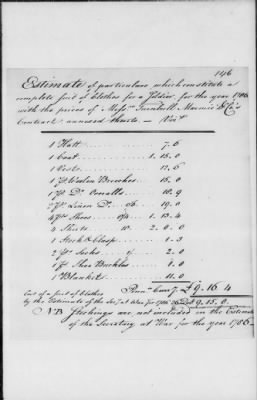 146
Estimate of particulars which constitute a
complete suit of Clothes for a Soldier, for the year 1786
with the prices of Messrs Turnbull Marmie & Co's
Contract annexed thereto. — Vizt
1 Hatt 7.6
1 Coat 1.15.0
1 Vest 12.6
1 pr Woolen Breeches 15.0
1 pr Do Overalls 10.9
2 pr Linen Do 9/6 19.0
4 pr Shoes 8/4 1.13.4
4 Shirts 10. 2.0.0
1 Stock & Clasp 1.3
2 pr Socks 1/ 2.0
1 pr Shoe Buckles 1.0
1 Blanket 11.0
Cost of a suit of Clothes Penna Curry £9.16.4
by the Estimate of the Secy at War for 1786 £9.15.0
NB Stockings are not included in the Estimate
of the Secretary at War for the year 1786.